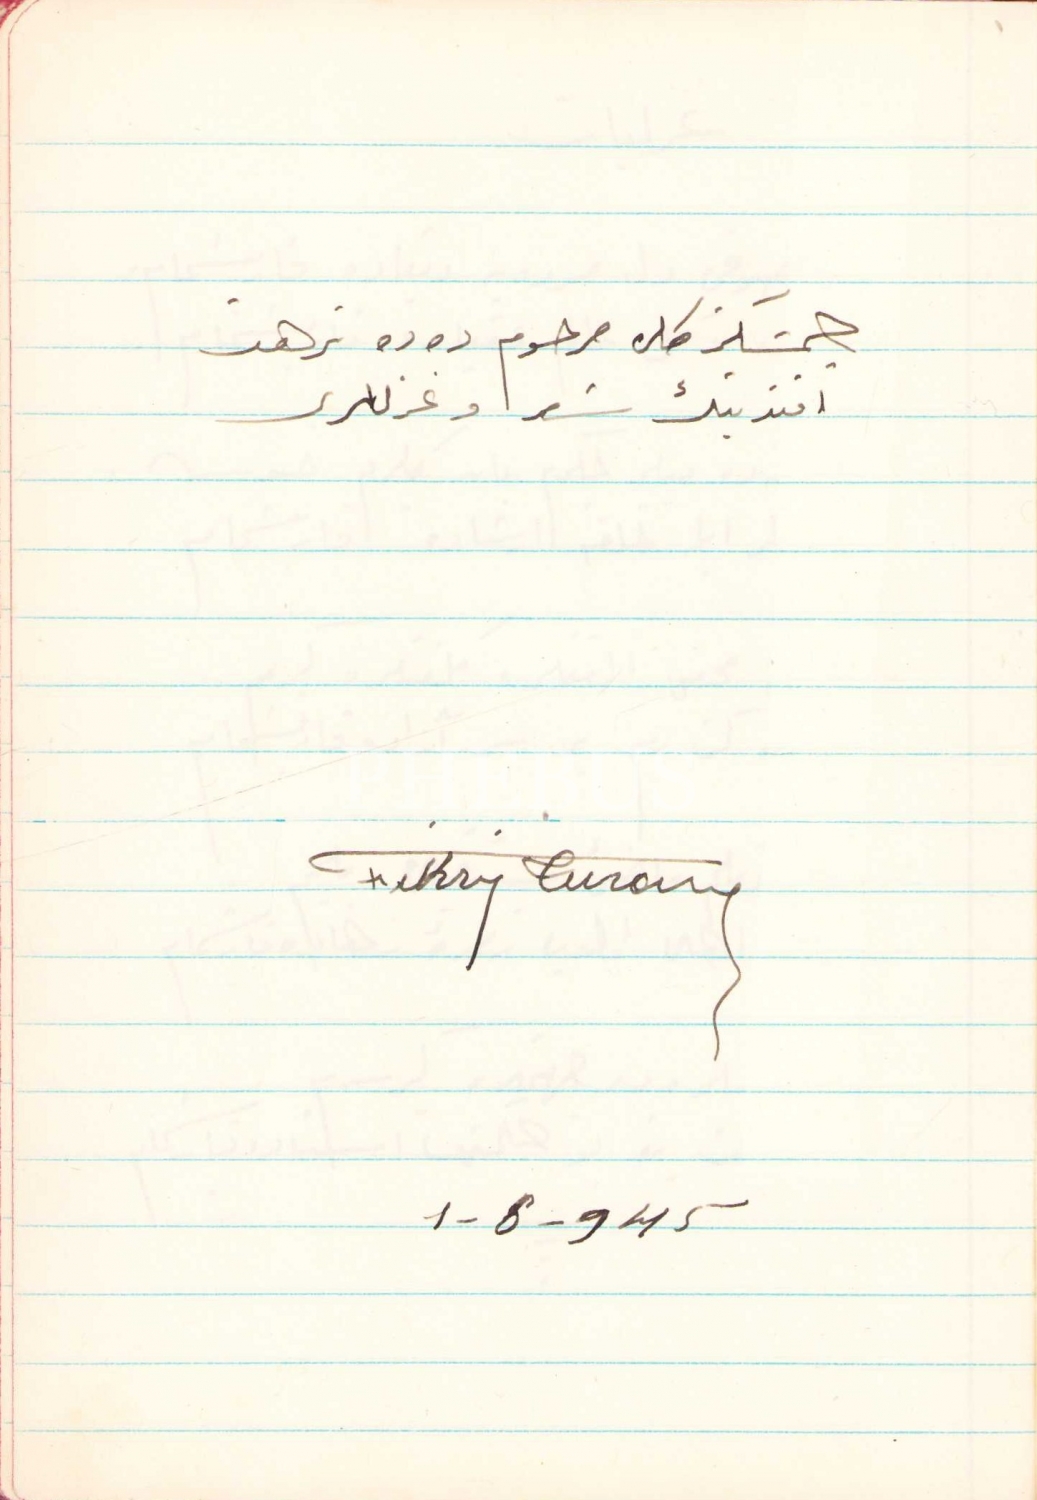 چمشكزكلى مرحوم دده نزهت
افندينك شعر و غزللرى
Fikri Turan
1-8-945